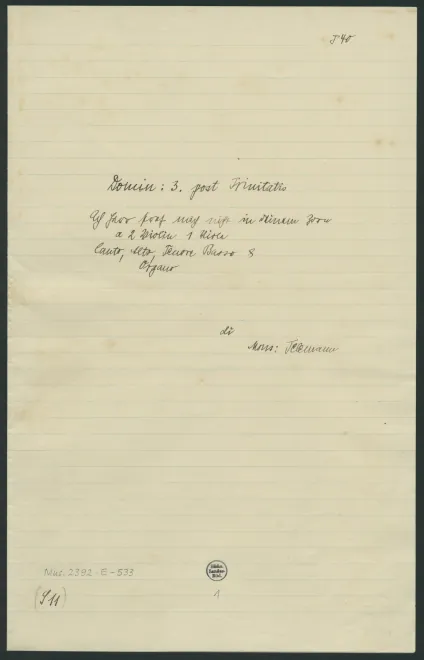 J 40
Domin: 3. post Trinitatis
Ach Herr straf mich nicht in deinem Zorn
a 2 Violin 1 Viola
Canto, Alto, Tenore Basso &
Organo
di
Mons: Telemann
Mus. 2392-E-533
Sächs.
Landes-
Bibl.
1